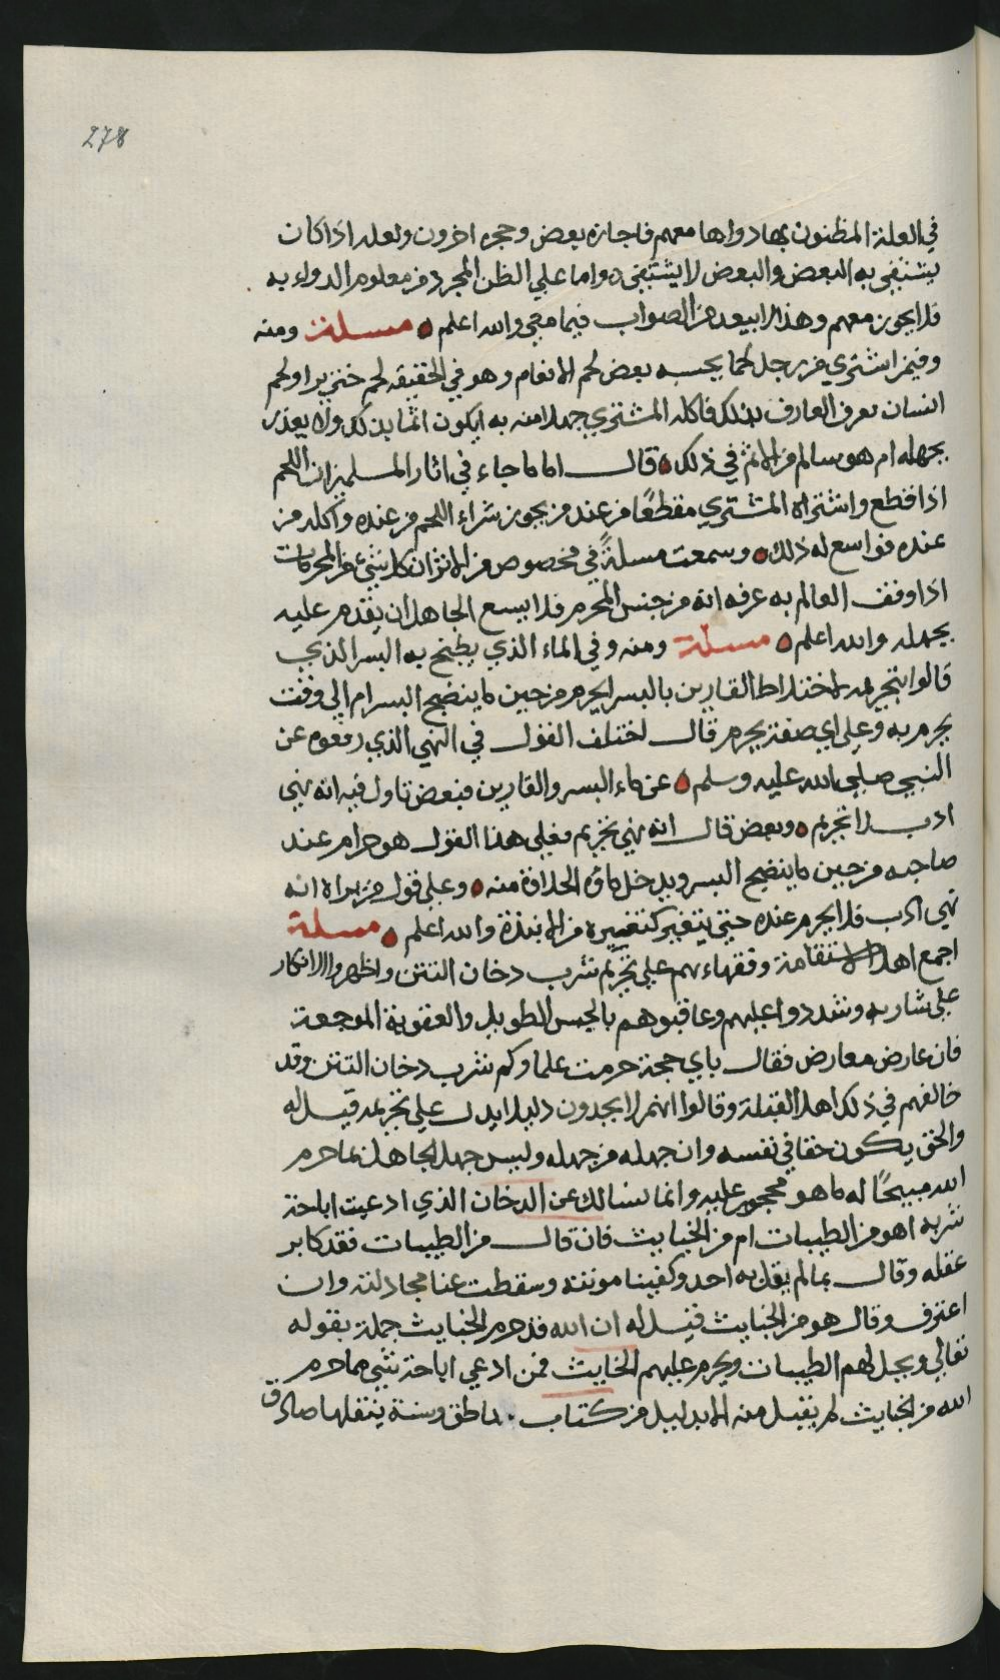 278
في العلة المظنون بها دواها معهم فاجازه بعض وحجره اخرون ولعله اذا كان
يشتفي به البعض والبعض لا يشتفي واما علي الظن المجرد من معلوم الدواء به
فلا يجوز معهم وهذا لا يبعد من الصواب فيما معي والله اعلم مسلة ومنه
وفيمن اشتري من رجل لحما يحسبه بعض لحم الانعام وهو في الحقيقه لحم خنزير او لحم
انسان بعرف العارف بذلك فاكله المشتري جهلا منه به ايكون اثما بذلك ولا يعذر
بجهله ام هو سالم من الاثم في ذلك قال اما ما جاء في اثار المسلمين ان اللحم
اذا قطع واشتراه المشتري مقطعًا من عند من يجوز شراء اللحم من عنده واكله من
عنده فواسع له ذلك وسمعت مسلةً في مخصوص من الاثر ان كل شيء من المحرمات
اذا وقف العالم به عرفه انه من جنس المحرم فلا يسع الجاهل ان يقدم عليه
بجهله والله اعلم مسلة ومنه وفي الماء الذي يطبخ به البسر الذي
قالوا بتحريمه لاختلاط القارين بالبسر ايحرم من حين ما ينضج البسر ام الي وقت
يحرم به وعلي اي صفة يحرم قال اختلف القول في النهي الذي رفعوه عن
النبي صلي الله عليه وسلم عن ماء البسر والقارين فبعض تاول فيه انه نهي
ادب لا تحريم وبعض قال انه نهي تحريم فعلي هذا القول هو حرام عند
صاحبه من حين ما ينضج البسر ويدخل ماؤه الحلاوة منه وعلي قول من يراه انه
نهي ادب فلا يحرم عنده حتي يتغير كتغييره من الانبذة والله اعلم مسلة
اجمع اهل الاستقامة وفقهاءهم علي تحريم شرب دخان التتن واظهروا الانكار
علي شاربه وشددوا عليهم وعاقبوهم بالحبس الطويل والعقوبة الموجعة
فان عارض معارض فقال باي حجة حرمت علماوكم شرب دخان التتن وقد
خالفهم في ذلك اهل القبلة وقالوا انهم لا يجدون دليلا يدل علي تحريمه قيل له
والحق يكون حقا في نفسه وان جهله من جهله وليس جهل الجاهل بما حرم
الله مبيحًا له ما هو محجور عليه وانما نسالك عن الدخان الذي ادعيت اباحة
شربه اهو من الطيبات ام من الخبايث فان قال من الطيبات فقد كابر
عقله وقال بما لم يقل به احد وكفينا مونته وسقطت عنا مجادلته وان
اعترف وقال هو من الخبايث قيل له ان الله قد حرم الخبايث جملة بقوله
تعالي ويحل لهم الطيبات ويحرم عليهم الخبايث فمن ادعي اباحة شي مما حرم
الله من الخبايث لم يقبل منه الا بدليل من كتاب ناطق وسنة ينقلها صادق